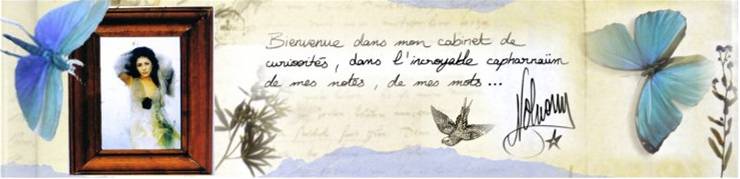 Bienvenue dans mon cabinet de
curiosités, dans l'incroyable capharnaüm
de mes notes, de mes mots...
Nolwenn